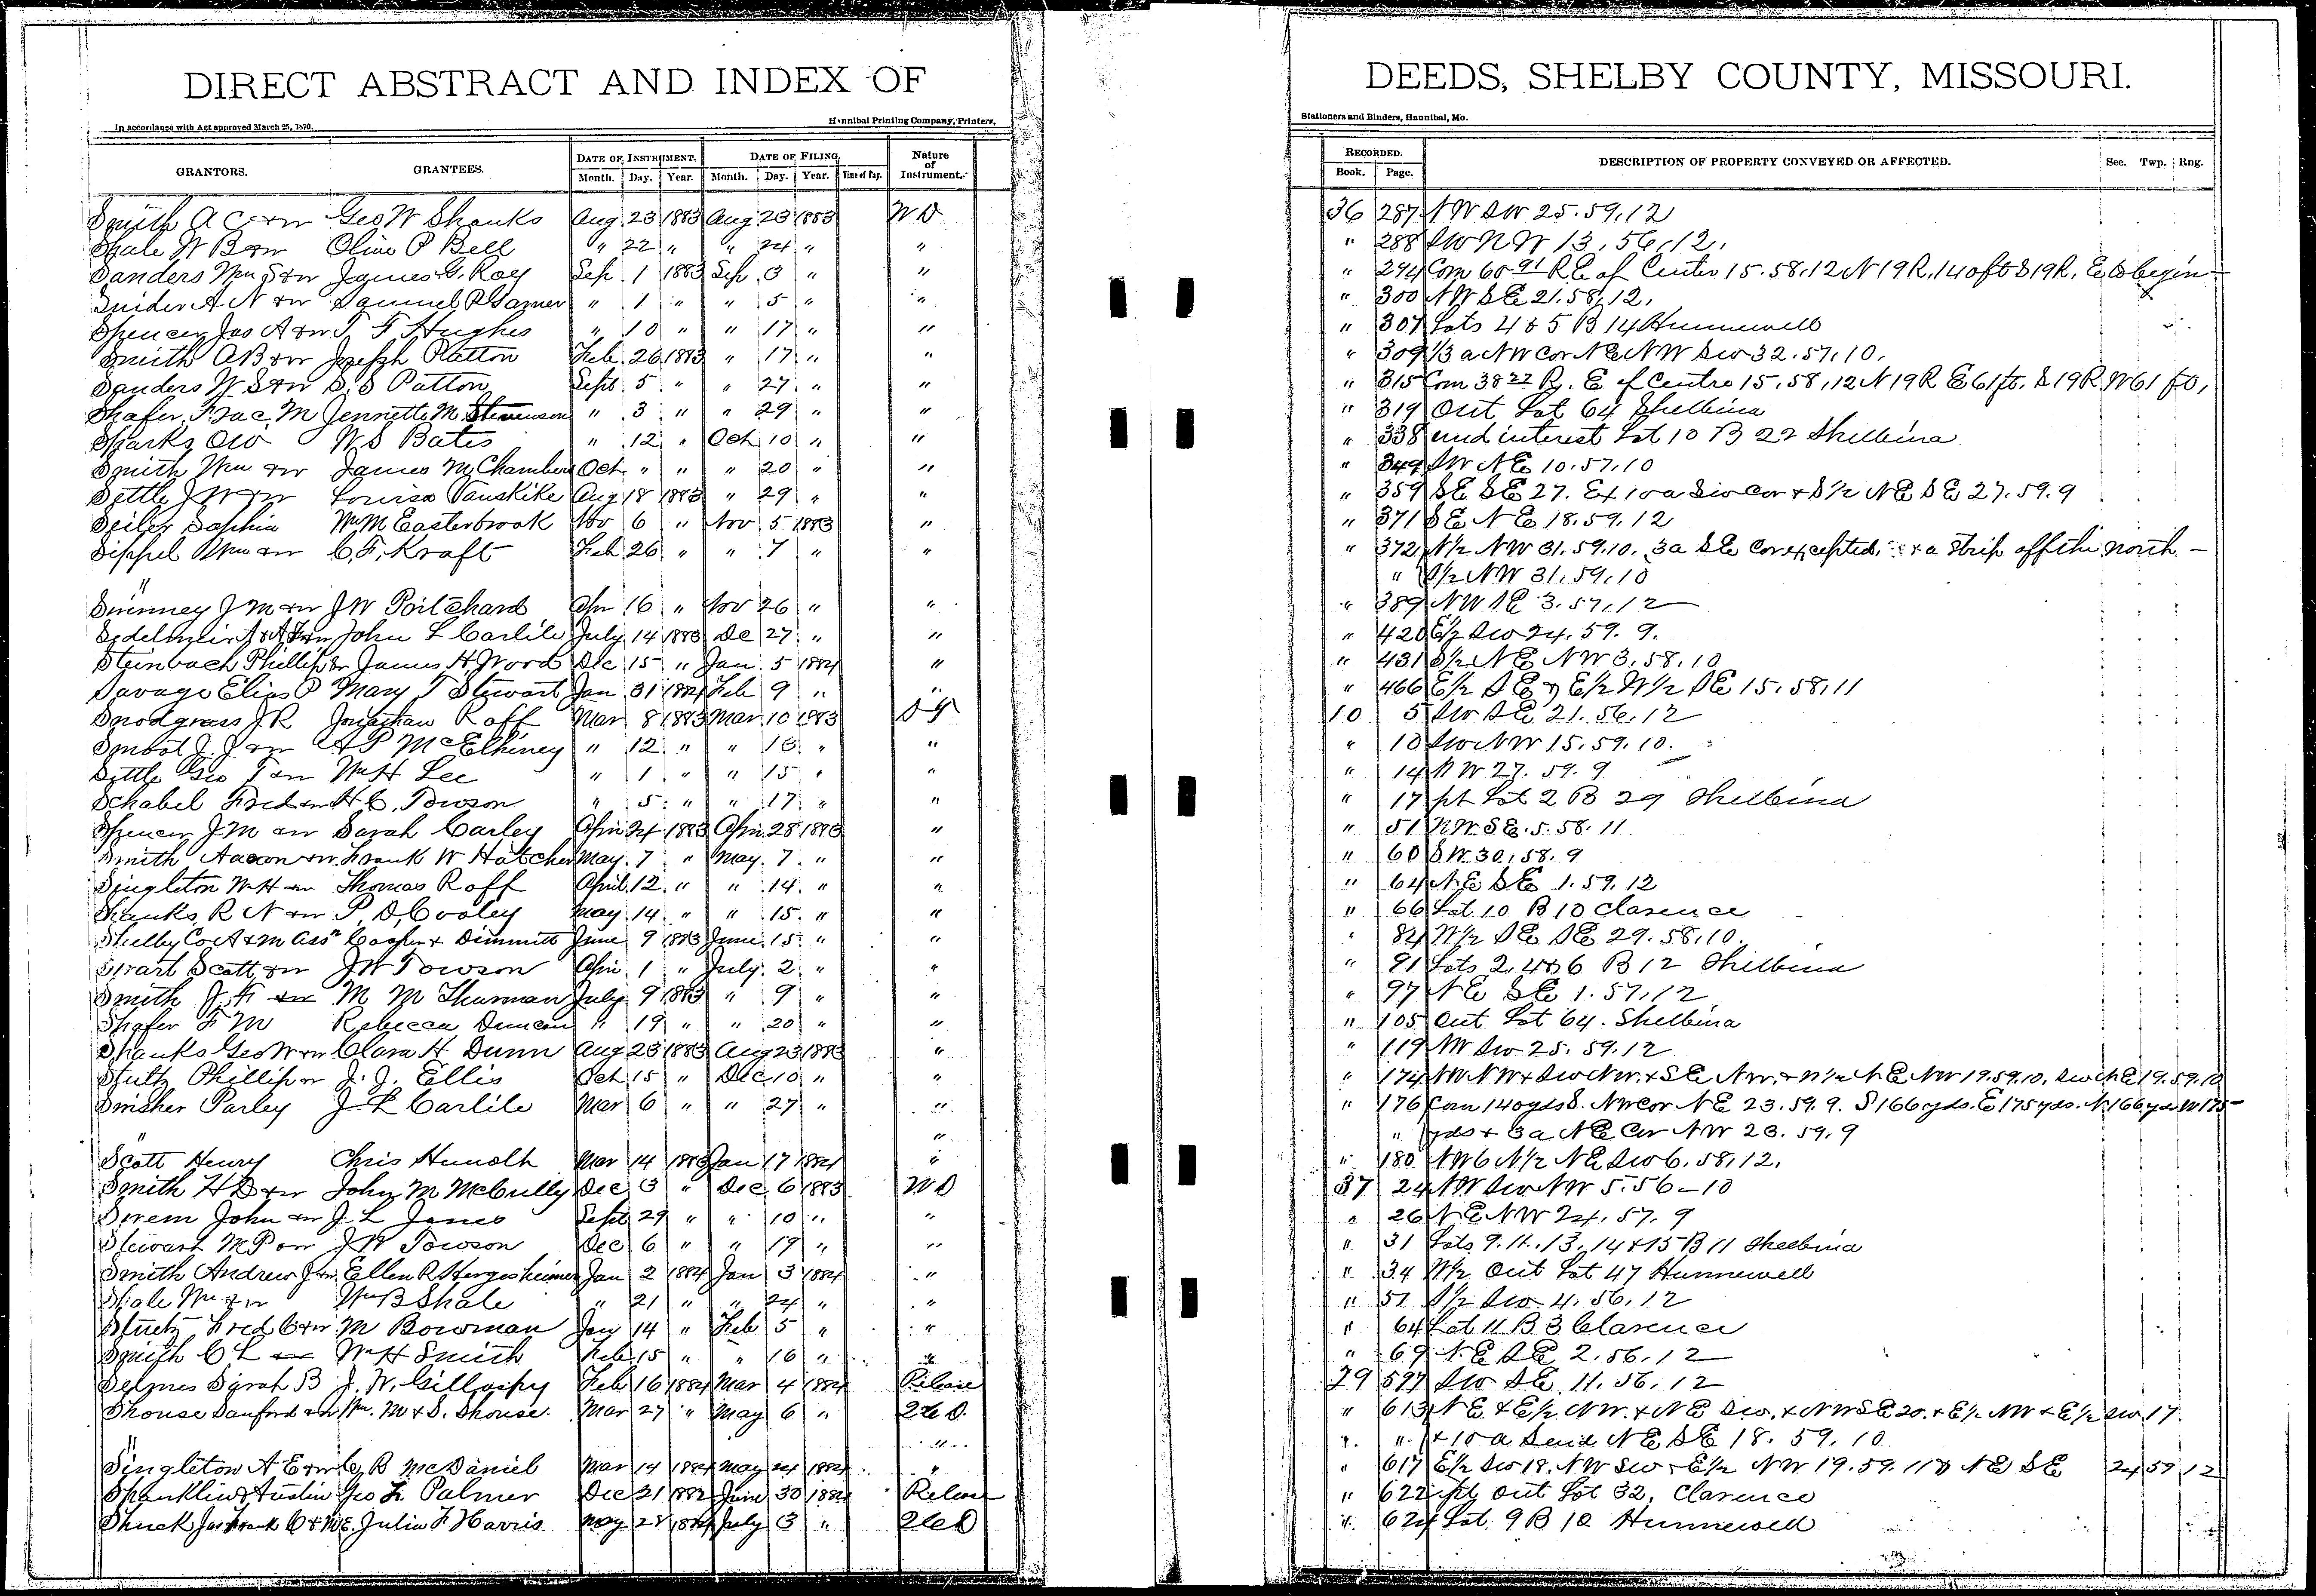 DIRECT ABSTRACT AND INDEX OF DEEDS, SHELBY COUNTY, MISSOURI.
In accordance with Act approved March 25, 1870. Hannibal Printing Company, Printers, Stationers and Binders, Hannibal, Mo.
GRANTORS. GRANTEES. DATE OF INSTRUMENT. Month. Day. Year. DATE OF FILING. Month. Day. Year. Time of Day. Nature of Instrument. RECORDED. Book. Page. DESCRIPTION OF PROPERTY CONVEYED OR AFFECTED. Sec. Twp. Rng.
Smith A C & w Geo W Shanks Aug 23 1883 Aug 23 1883 W D 36 287 NW SW 25.59.12
Shale W B & w Olive P Bell " 22 " " 24 " " " 288 SW NW 13.56.12.
Sanders Wm S & w James G. Ray Sep 1 1883 Sep 3 " " " 294 Com 60 91 R E of Center 15.58.12 N 19 R. 140 ft S 19 R. E to begin
Snider A N & w Samuel R Garner " 1 " " 5 " " " 300 NW SE 21.58.12.
Spencer Jas A & w T F Hughes " 10 " " 17 " " " 307 Lots 4 & 5 B 14 Hunnewell
Smith A B & w Joseph Patton Feb 26 1883 " 17 " " " 309 1/3 a NW Cor NE NW SW 32.57.10.
Sanders W S & w S. S Patton Sept 5 " " 27 " " " 315 Com 38 22 R. E of Centre 15.58.12 N 19 R E 61 ft. S 19 R W 61 ft,
Shafer Frac. M Jennette M Stevenson " 3 " " 29 " " " 319 Out Lot 64 Shelbina
Sparks O W W S Bates " 12 " Oct 10 " " " 338 und interest Lot 10 B 22 Shelbina
Smith Wm & w James M Chambers Oct " " " 20 " " " 349 SW NE 10.57.10
Settle J W & w Louisa Vanskike Aug 18 1883 " 29 " " " 359 SE SE 27. Ex 10 a SW Cor & S 1/2 NE SE 27.59.9
Seiler Sophia Wm M Easterbrook Nov 6 " Nov 5 1883 " " 371 SE NE 18.59.12
Sippel Wm & w C. F. Kraft Feb 26 " " 7 " " " 372 N 1/2 NW 31.59.10. 3a SE Cor excepted. & a strip off the north -
" " S 1/2 NW 31.59.10
Swinney J M & w J W Pritchard Apr 16 " Nov 26 " " " 389 NW SE 3.57.12
John L Carlile July 14 1883 De 27 " " " 420 E 1/2 SW 24.59.9.
Steinbach Phillip & w James H Wood Dec 15 " Jan 5 1884 " " 431 S 1/2 NE NW 3.58.10
Savage Elias P Mary T Stewart Jan 31 1884 Feb 9 " " " 466 E 1/2 SE & E 1/2 W 1/2 SE 15.58.11
Snodgrass J. R Jonathan Roff Mar 8 1883 Mar 10 1883 10 5 SW SE 21.56.12
Smoot J. J & w A P McElhiney " 12 " " 13 " " " 10 SW NW 15.59.10.
Settle Geo T & w Wm H Lee " 1 " " 15 " " " 14 NW 27.59.9
Schabel Fred & w H. C. Towson " 5 " " 17 " " " 17 pt Lot 2 B 29 Shelbina
Spencer J M & w Sarah Carley Apr 24 1883 Apr 28 1883 " " 51 NW. SE. 5.58.11
Smith Aaron & w Frank W Hatcher May 7 " May 7 " " " 60 SW 30.58.9
Singleton W H & w Thomas Roff April 12 " " 14 " " " 64 NE SE 1.59.12
Shanks R N & w P. D. Cooley May 14 " " 15 " " " 66 Lot 10 B 10 Clarence
Shelby Co A & M Assn Cooper & Dimmitt June 9 1883 June 15 " " " 84 W 1/2 SE SE 29.58.10.
Swart Scott & w J W Towson Apr 1 " July 2 " " " 91 Lots 2, 4 & 6 B 12 Shelbina
Smith J. F & w M M Thurman July 9 1883 " 9 " " " 97 NE SE 1.57.12
Shafer F M Rebecca Duncan " 19 " " 20 " " " 105 Out Lot 64. Shelbina
Shanks Geo W & w Clara H Dunn Aug 23 1883 Aug 23 1883 " " 119 NW SW 25.59.12
Stultz Phillip & w J. J. Ellis Oct 15 " Dec 10 " " " 174 NW NW & SW NW. & SE NW. & N 1/2 NE NW 19.59.10, SW NE 19.59.10
Swisher Parley J L Carlile Mar 6 " " 27 " " " 176 Com 140 yds S. NW Cor NE 23.59.9. S 166 yds. E 175 yds. N 166 yds W 175 -
" " " yds & 3a NE Cor NW 23.59.9
Scott Henry Chris Hunolt Mar 14 1883 Jan 17 1884 " " 180 NW 6 N 1/2 NE SW 6.58.12.
Smith H D & w John M McCully Dec 3 " Dec 6 1883 W D 37 24 NW SW NW 5.56-10
Swem John & w J. L Janes Sept 29 " " 10 " " " 26 NE NW 24.57.9
Stewart M P & w J W Towson Dec 6 " " 19 " " " 31 Lots 9. 11. 13, 14 & 15 B 11 Shelbina
Smith Andrew J & w Ellen R Hergesheimer Jan 2 1884 Jan 3 1884 " " 34 W 1/2 Out Lot 47 Hunnewell
Shale Wm & w Wm B Shale " 21 " " 24 " " " 51 S 1/2 SW 4.56.12
Stuetz Fred C & w M Bowman Jan 14 " Feb 5 " " " 64 Lot 11 B 3 Clarence
Smith C L & w Wm H Smith Feb 15 " " 16 " " " 69 NE SE 2.56.12
Selmes Sarah B J. W. Gillaspy Feb 16 1884 Mar 4 1884 Release 29 597 SW SE 11.56.12
Shouse Sanford & w Wm. M & S. Shouse. Mar 27 " May 6 " 2 C D. " 613 NE & E 1/2 NW. & NE SW. & NW SE 20. & E 1/2 NW & E 1/2 SW 17
" " " " & 10 a Said NE SE 18.59.10
Singleton A E & w C R McDaniel Mar 14 1884 May 24 1884 " " 617 E 1/2 SW 18. NW SW & E 1/2 NW 19.59.11 & NE SE 24 59 12
Shanklin & Austin Geo L Palmer Dec 21 1882 June 30 1884 Release " 622 pt Out Lot 32, Clarence
Shuck Jas Frank C & M E. Julia F Harris May 28 1884 July 3 " Q C D " 624 Lot 9 B 10 Hunnewell